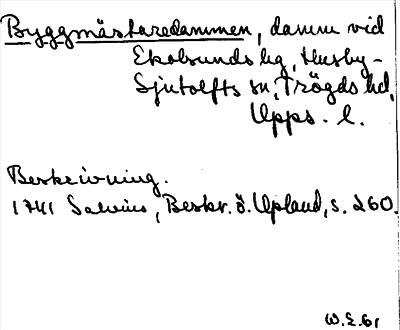 Byggmästaredammen, damm vid
Ekolsunds hg, Husby-
Sjutolfts sn, Trögds hd,
Upps. l.
Beskrivning.
1741 Salvius, Beskr. ö. Upland, s. 260.
W.E.61